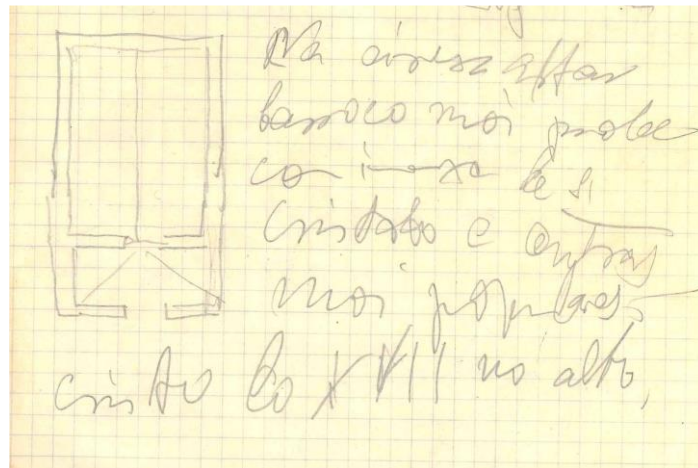 Na ábsida altar
barroco moi pobre
con imaxe de S.
Cristobo e outras
moi populares.
cristo do XVII no alto,